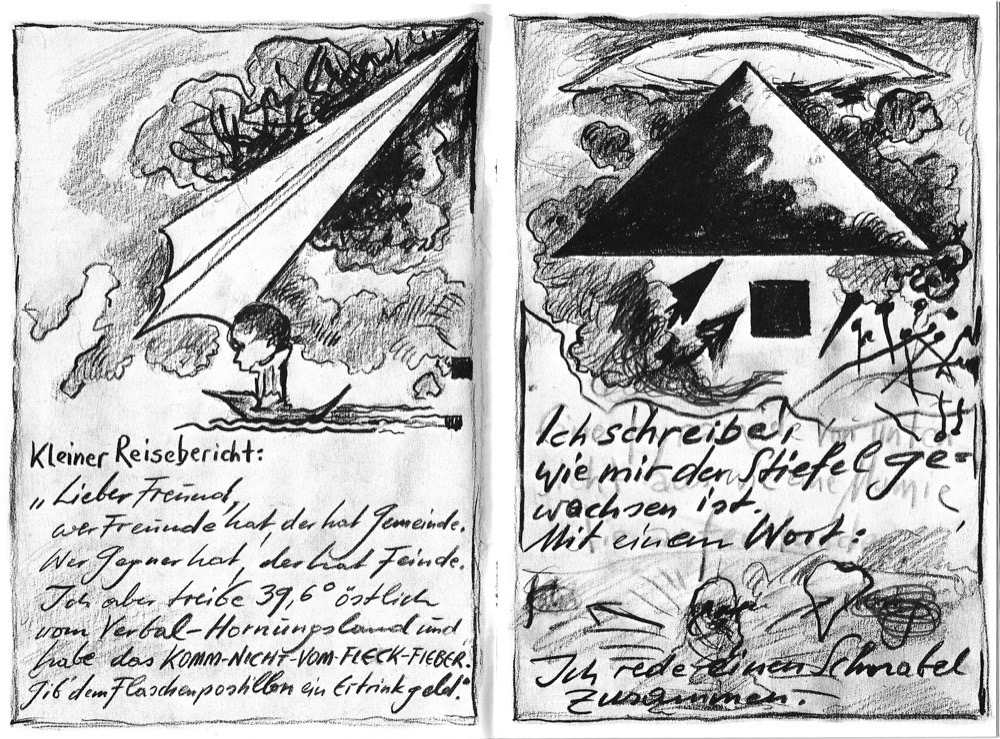 Kleiner Reisebericht:
„Lieber Freund,
wer Freunde hat, der hat Gemeinde.
Wer Gegner hat, der hat Feinde.
Ich aber treibe 39,6° östlich
vom Verbal-Hornungsland und
habe das KOMM-NICHT-VOM-FLECK-FIEBER.
Gib dem Flaschenpostillon ein Eitrinkgeld."
Ich schreibe,
wie mir der Stiefel ge=
wachsen ist.
Mit einem Wort:
Ich rede einen Schnabel
zusammen.